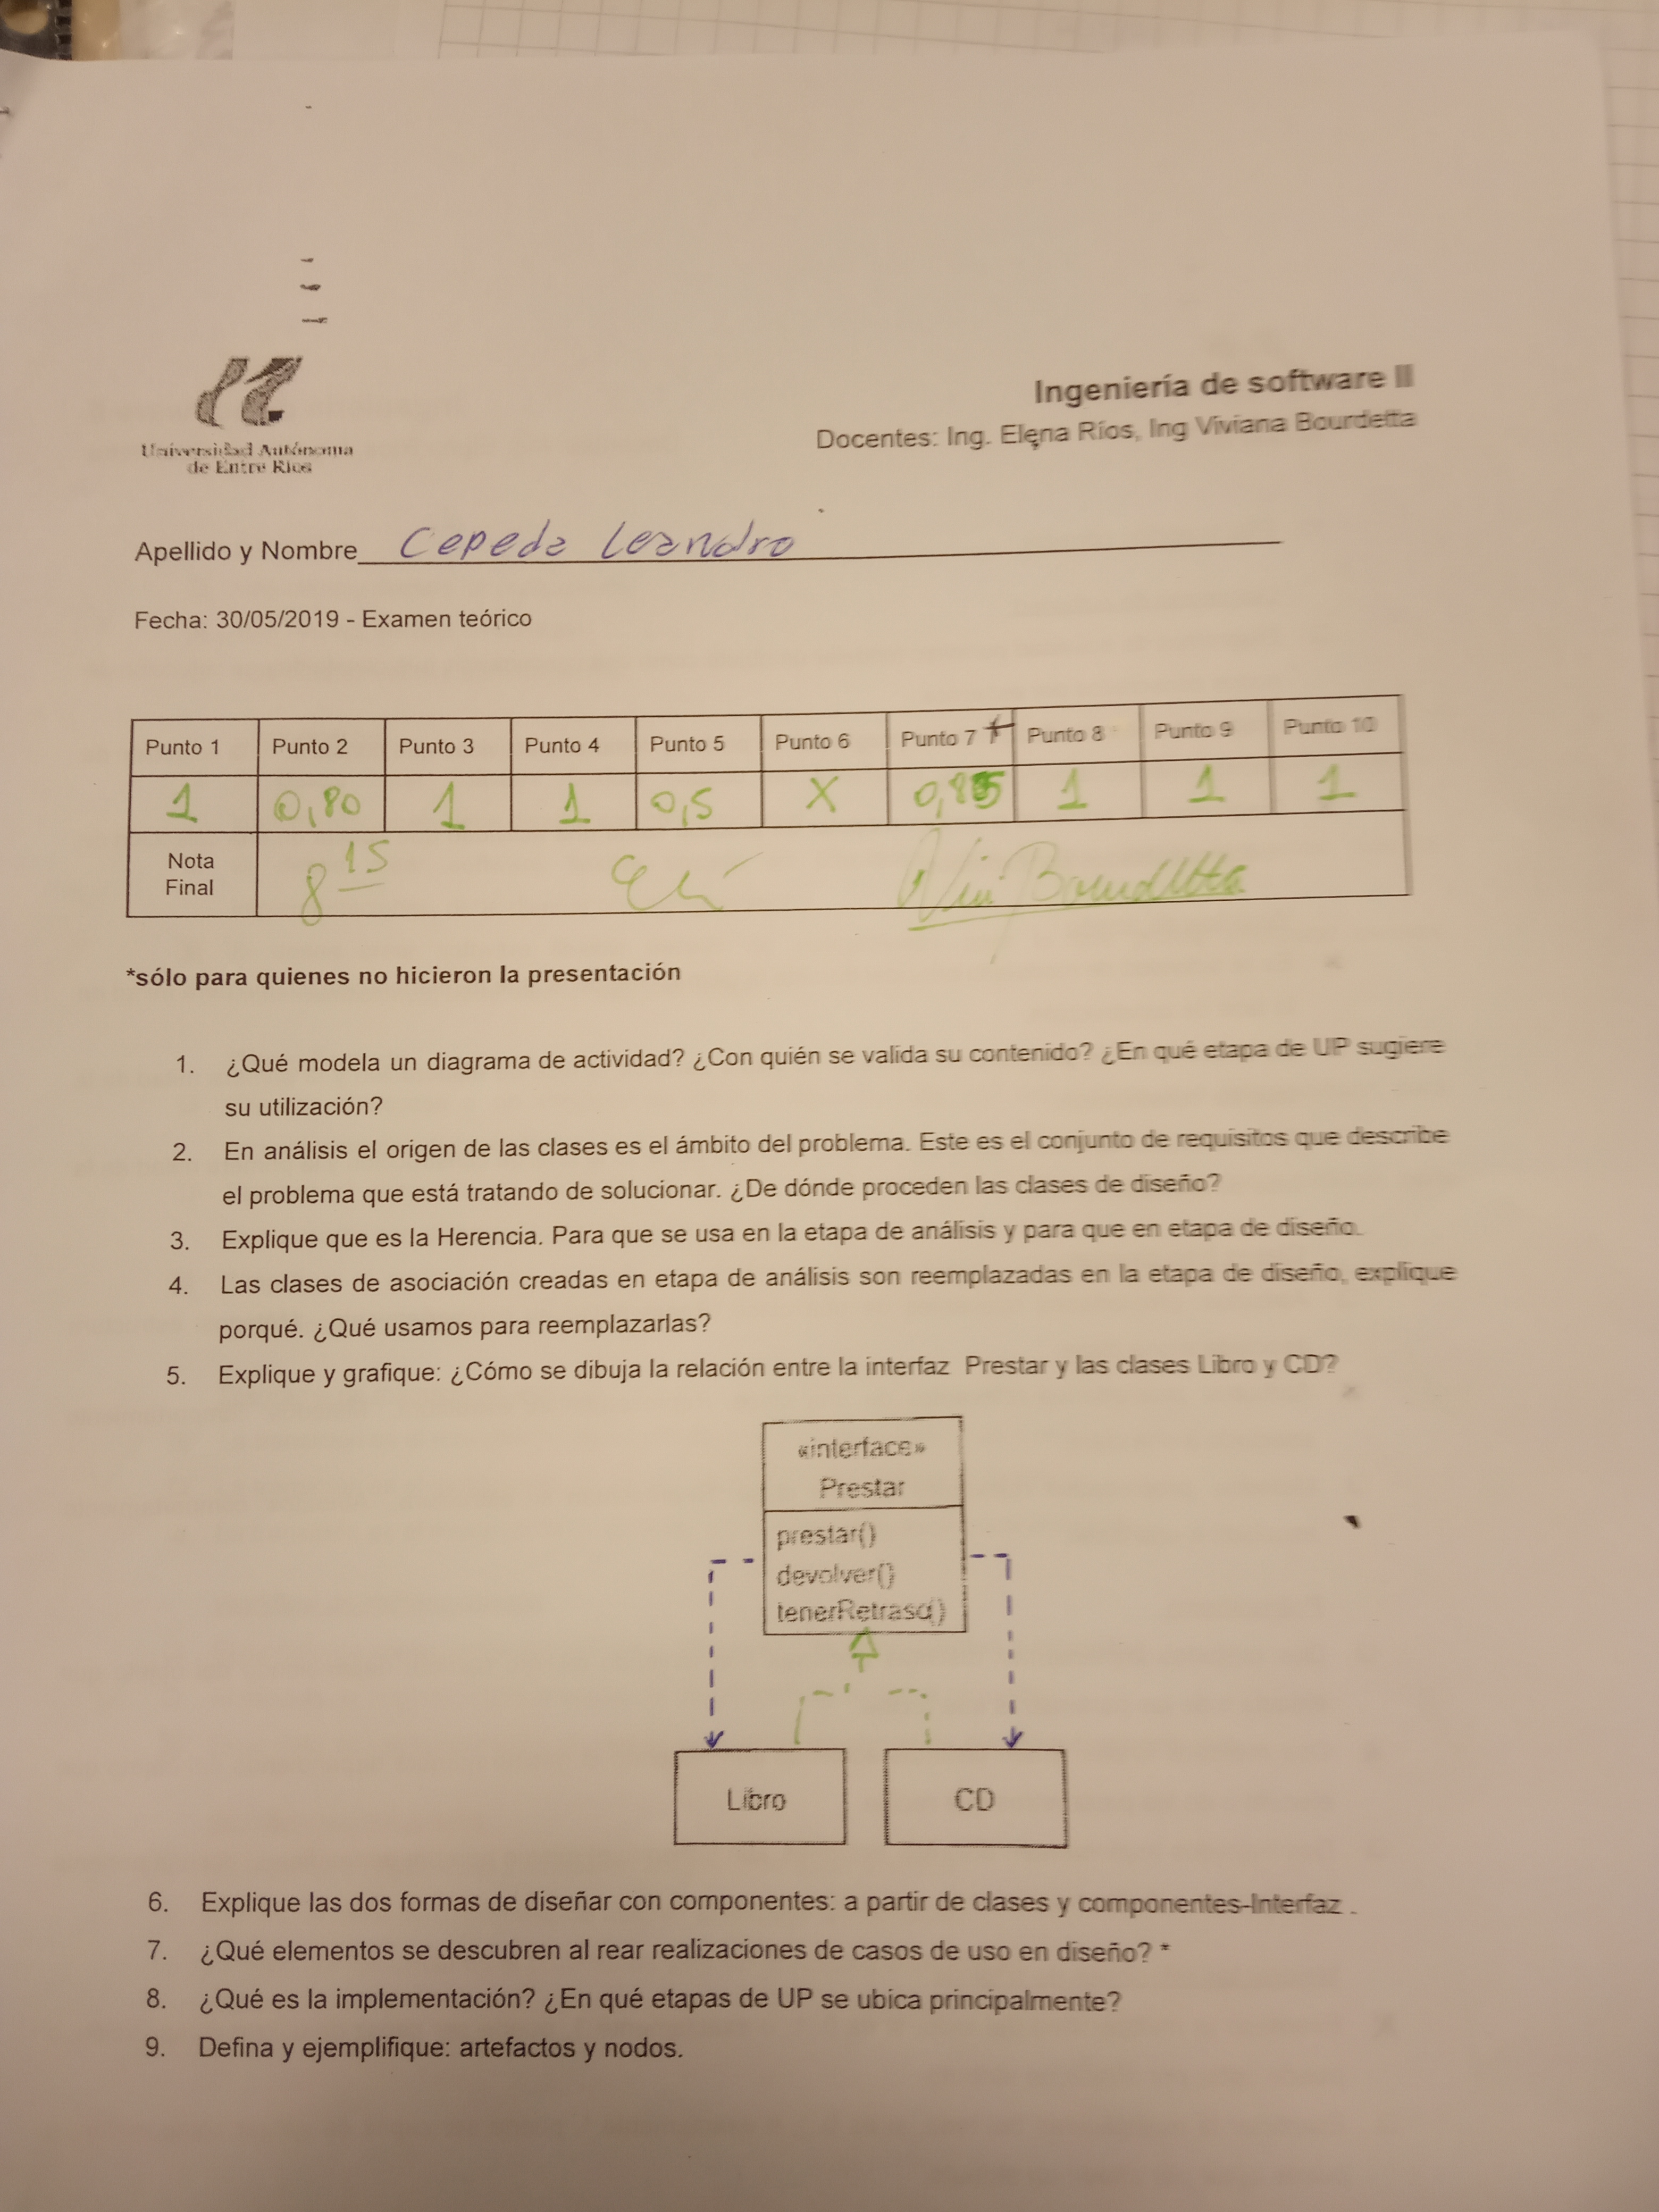 Universidad Autónoma
de Entre Ríos
Ingeniería de software II
Docentes: Ing. Elena Ríos, Ing Viviana Bourdetta
Apellido y Nombre Cepeda Leandro
Fecha: 30/05/2019 - Examen teórico
Punto 1 Punto 2 Punto 3 Punto 4 Punto 5 Punto 6 Punto 7 Punto 8 Punto 9 Punto 10
1 0,80 1 1 0,5 X 0,85 1 1 1
Nota
Final
8 15
Vivi Bourdetta
*sólo para quienes no hicieron la presentación
1. ¿Qué modela un diagrama de actividad? ¿Con quién se valida su contenido? ¿En qué etapa de UP sugiere
su utilización?
2. En análisis el origen de las clases es el ámbito del problema. Este es el conjunto de requisitos que describe
el problema que está tratando de solucionar. ¿De dónde proceden las clases de diseño?
3. Explique que es la Herencia. Para que se usa en la etapa de análisis y para que en etapa de diseño.
4. Las clases de asociación creadas en etapa de análisis son reemplazadas en la etapa de diseño, explique
porqué. ¿Qué usamos para reemplazarlas?
5. Explique y grafique: ¿Cómo se dibuja la relación entre la interfaz Prestar y las clases Libro y CD?
«interface»
Prestar
prestar()
devolver()
tenerRetraso()
Libro CD
6. Explique las dos formas de diseñar con componentes: a partir de clases y componentes-Interfaz .
7. ¿Qué elementos se descubren al rear realizaciones de casos de uso en diseño? *
8. ¿Qué es la implementación? ¿En qué etapas de UP se ubica principalmente?
9. Defina y ejemplifique: artefactos y nodos.